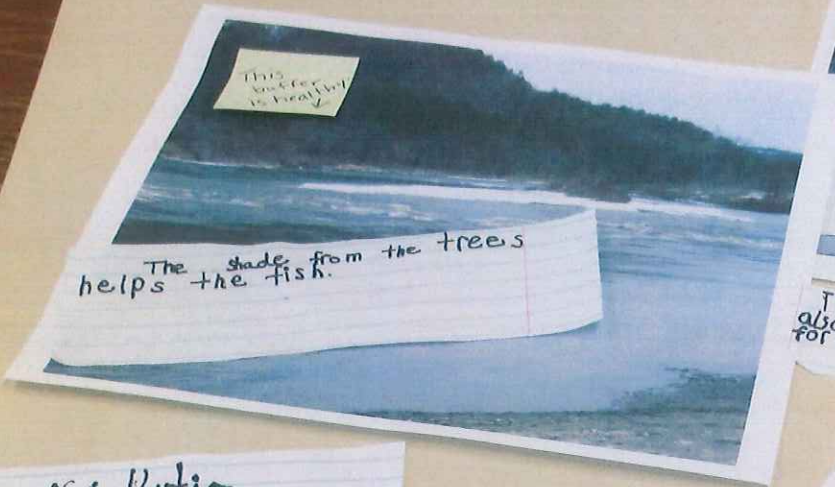 This
buffer
is healthy
The shade from the trees
helps the fish.
T
also
for